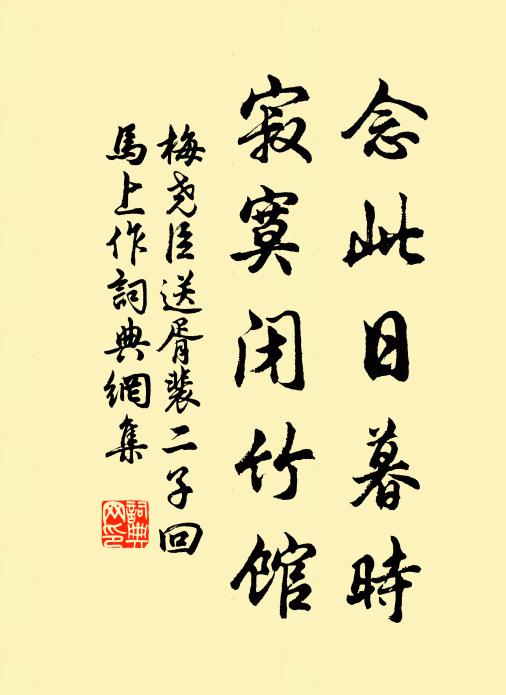 念此日暮時
寂寞闭竹館
梅尧臣送胥裴二子回
馬上作詞典網集
詞典
网印